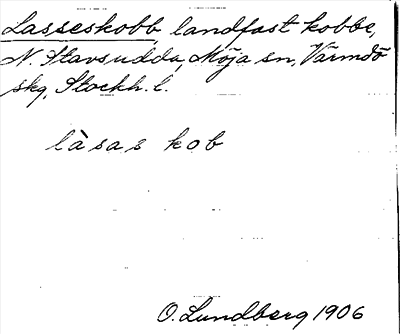 Lasseskobb, landfast kobbe,
N. Stavsudda, Möja sn, Värmdö
skg, Stockh. l.
làsas kob
O. Lundberg 1906